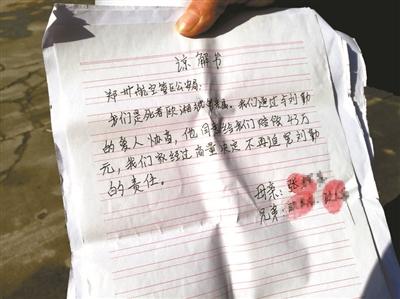 谅解书
郑州航空港区公安局:
我们是死者欧湘斌家属。我们通过与刘勤
的家人协商,他同意给我们赔偿43万
元,我们家经过商量决定不再追究刘勤
的责任。
母亲:张
兄弟: